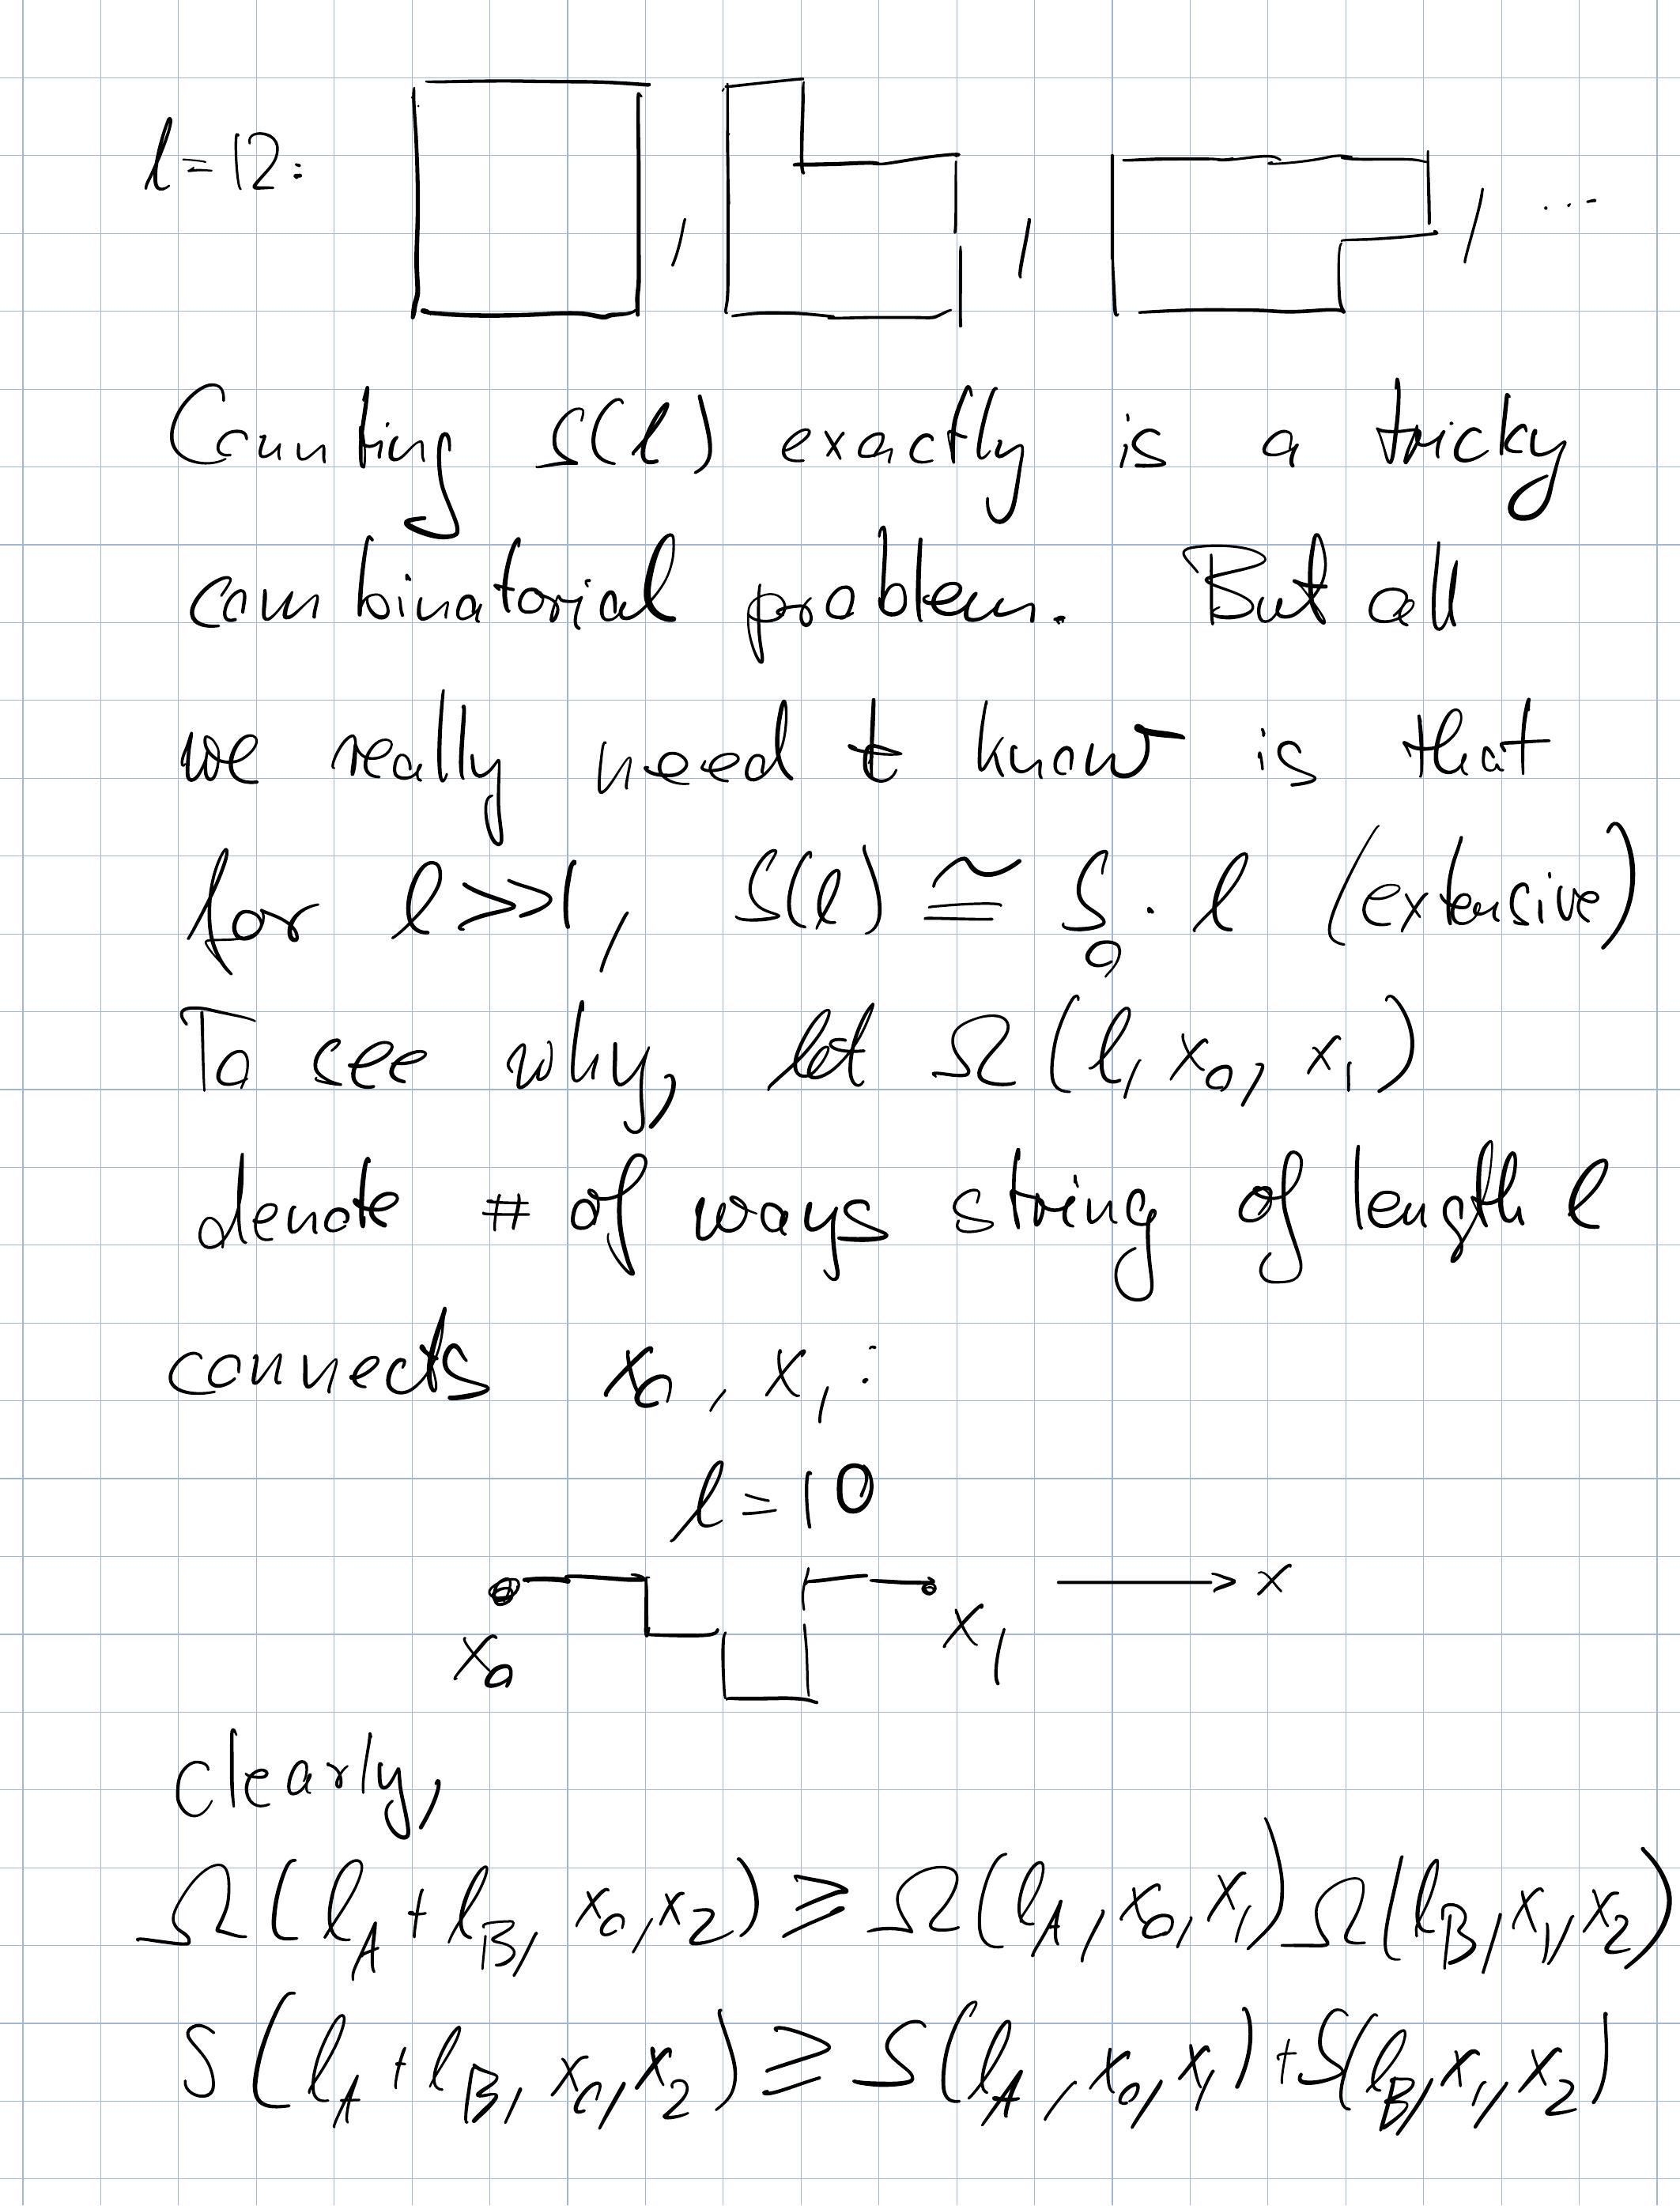 l=12: , , , ...
Counting S(l) exactly is a tricky
combinatorial problem. But all
we really need t know is that
for l>>1, S(l) ≅ S₀ · l (extensive)
To see why, let Ω(l, x₀, x₁)
denote # of ways string of length l
connects x₀, x₁:
l=10
x₀ x₁ → x
Clearly,
Ω(l_A + l_B, x₀, x₂) ≥ Ω(l_A, x₀, x₁) Ω(l_B, x₁, x₂)
S(l_A + l_B, x₀, x₂) ≥ S(l_A, x₀, x₁) + S(l_B, x₁, x₂)